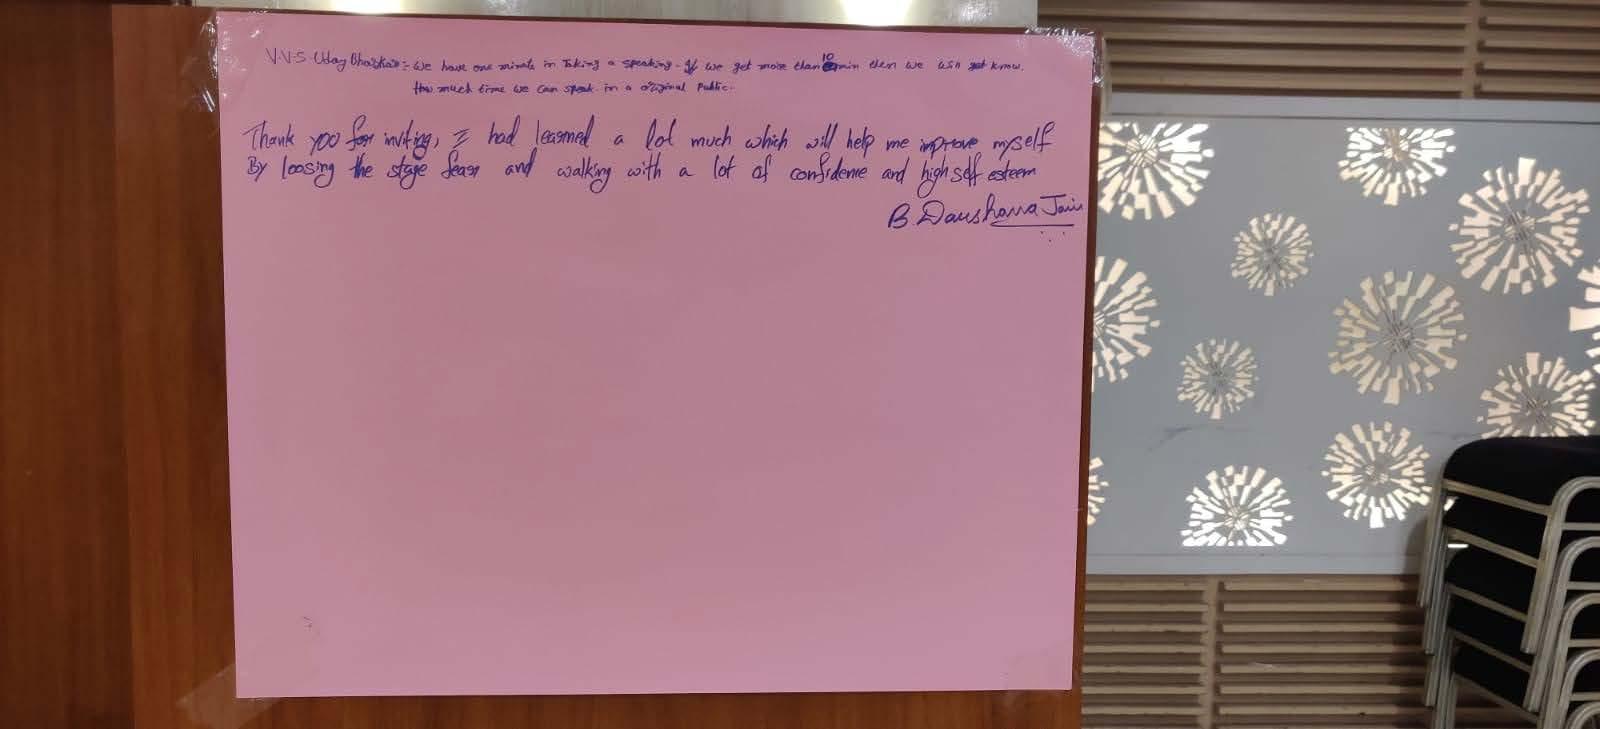 V.V.S. Uday Bhaskar:- We have one minute in Taking a speaking. If we get more than 10 min then we will get know.
How much time we can speak in a original Public.
Thank you for inviting, I had learned a lot much which will help me improve myself
By loosing the stage fear and walking with a lot of confidence and high self esteem
B. Daushanna Jain